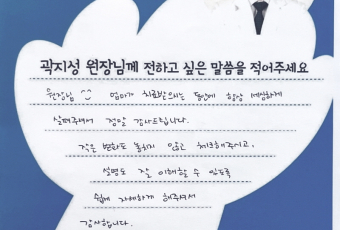 곽지성 원장님께 전하고 싶은 말씀을 적어주세요
원장님 ^^ 엄마가 치료받으시는 동안에 항상 세심하게
살펴주셔서 정말 감사드립니다.
작은 변화도 놓치지 않고 체크해주시고,
설명도 잘 이해할 수 있도록
쉽게 자세하게 해주셔서
감사합니다.